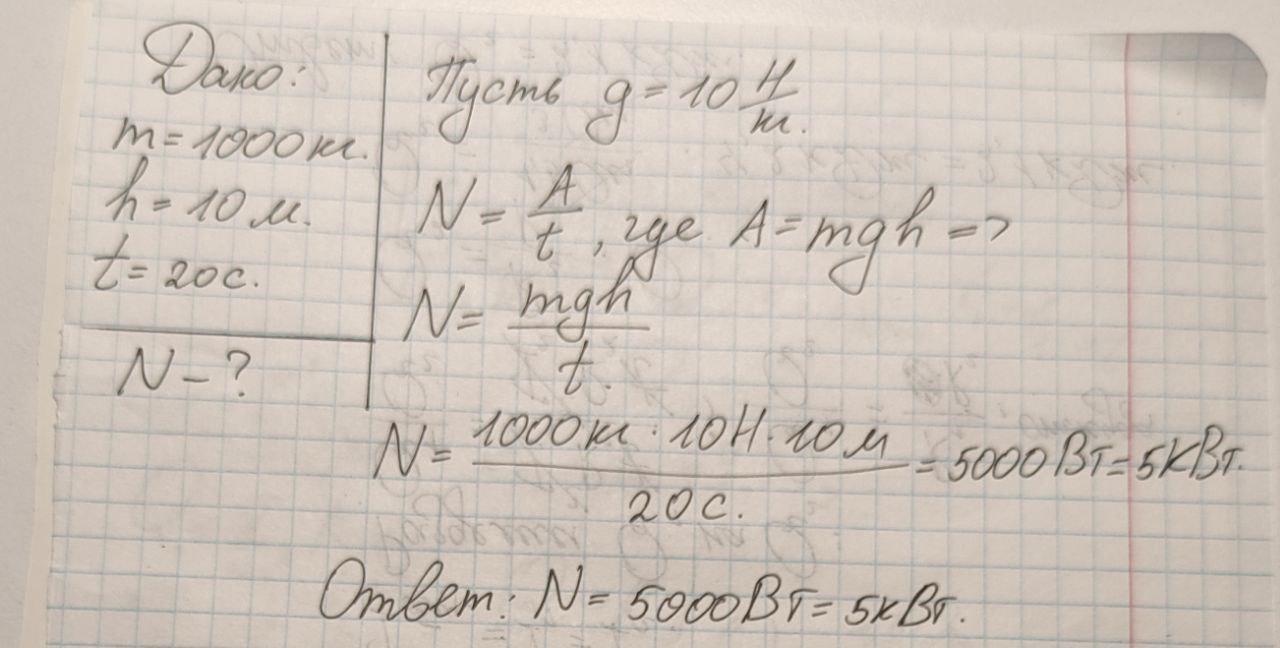 Дано:
m=1000кг.
h=10м.
t=20с.
N-?
Пусть g=10 Н/кг.
N= A/t, где A=mgh =>
N= mgh/t.
N= 1000кг·10Н·10м/20с. =5000Вт=5кВт.
Ответ: N= 5000Вт= 5кВт.